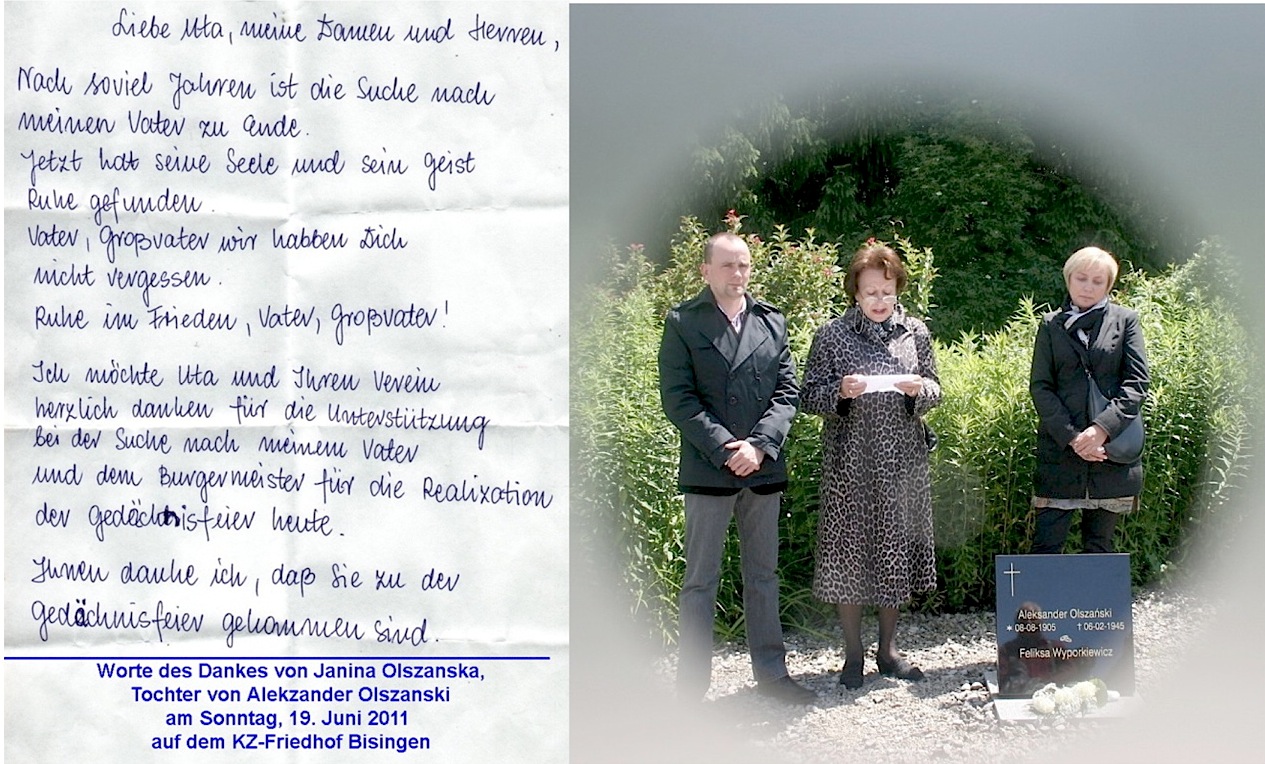 Liebe Uta, meine Damen und Herren,
Nach soviel Jahren ist die Suche nach
meinen Vater zu Ende.
Jetzt hat seine Seele und sein Geist
Ruhe gefunden.
Vater, Großvater wir habben Dich
nicht vergessen.
Ruhe im Frieden, Vater, Großvater!
Ich möchte Uta und Ihren Verein
herzlich danken für die Unterstützung
bei der Suche nach meinem Vater
und dem Burgermeister für die Realization
der Gedächnisfeier heute.
Ihnen danke ich, daß Sie zu der
Gedächnisfeier gekommen sind.
Worte des Dankes von Janina Olszanska,
Tochter von Alekzander Olszanski
am Sonntag, 19. Juni 2011
auf dem KZ-Friedhof Bisingen
Aleksander Olszański
✶ 08-08-1905 † 06-02-1945
Feliksa Wyporkiewicz